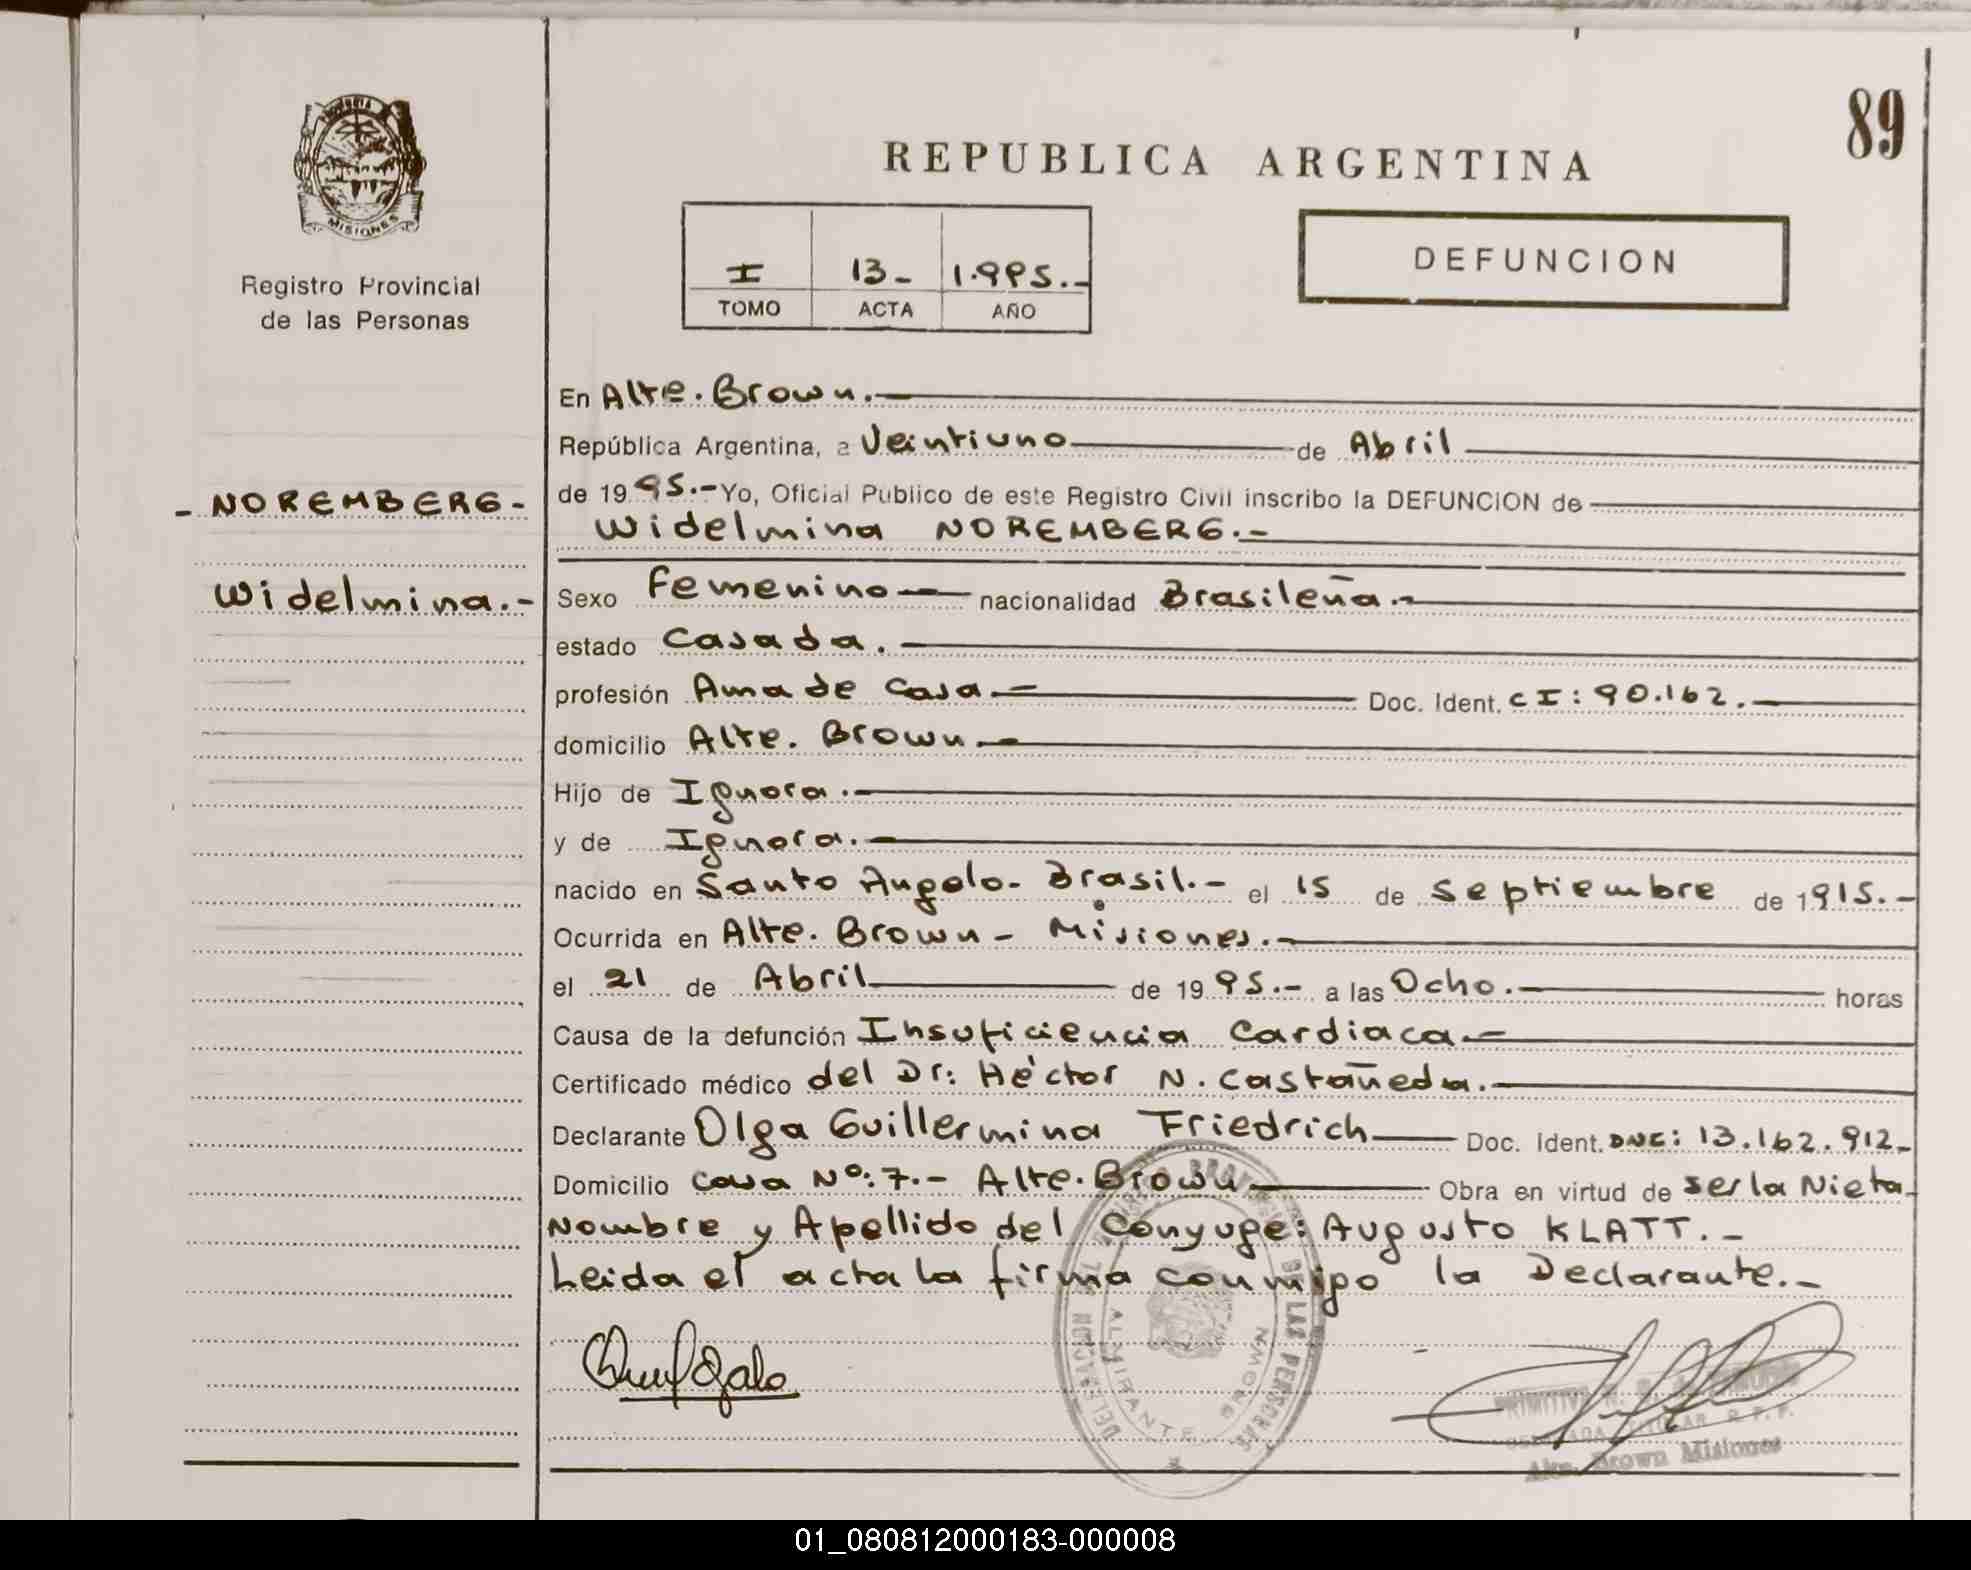 PROVINCIA
MISIONES
Registro Provincial
de las Personas
89
REPUBLICA ARGENTINA
I 13- 1.995.-
TOMO ACTA AÑO
DEFUNCION
En Alte. Brown.
República Argentina, a Veintiuno de Abril
- NOREMBERG -
de 1995.- Yo, Oficial Público de este Registro Civil inscribo la DEFUNCION de
Widelmina NOREMBERG.-
Widelmina.-
Sexo Femenino nacionalidad Brasileña.-
estado Casada.
profesión Ama de Casa.- Doc. Ident. CI: 90.162.
domicilio Alte. Brown.-
Hijo de Ignora.-
y de Ignora.-
nacido en Santo Angelo- Brasil.- el 15 de Septiembre de 1915.-
Ocurrida en Alte. Brown - Misiones.-
el 21 de Abril de 1995.- a las Ocho. horas
Causa de la defunción Insuficiencia Cardiaca.-
Certificado médico del Dr: Héctor N. Castañeda.-
Declarante Olga Guillermina Friedrich Doc. Ident. DNI: 13.162.912-
Domicilio Casa Nº: 7.- Alte. Brown Obra en virtud de ser la Nieta.
Nombre y Apellido del Conyuge: Augusto KLATT.-
Leida el acta la firma conmigo la Declarante.-
DE LAS PERSONAS
ALMIRANTE BROWN
Alte. Brown Misiones
01_080812000183-000008